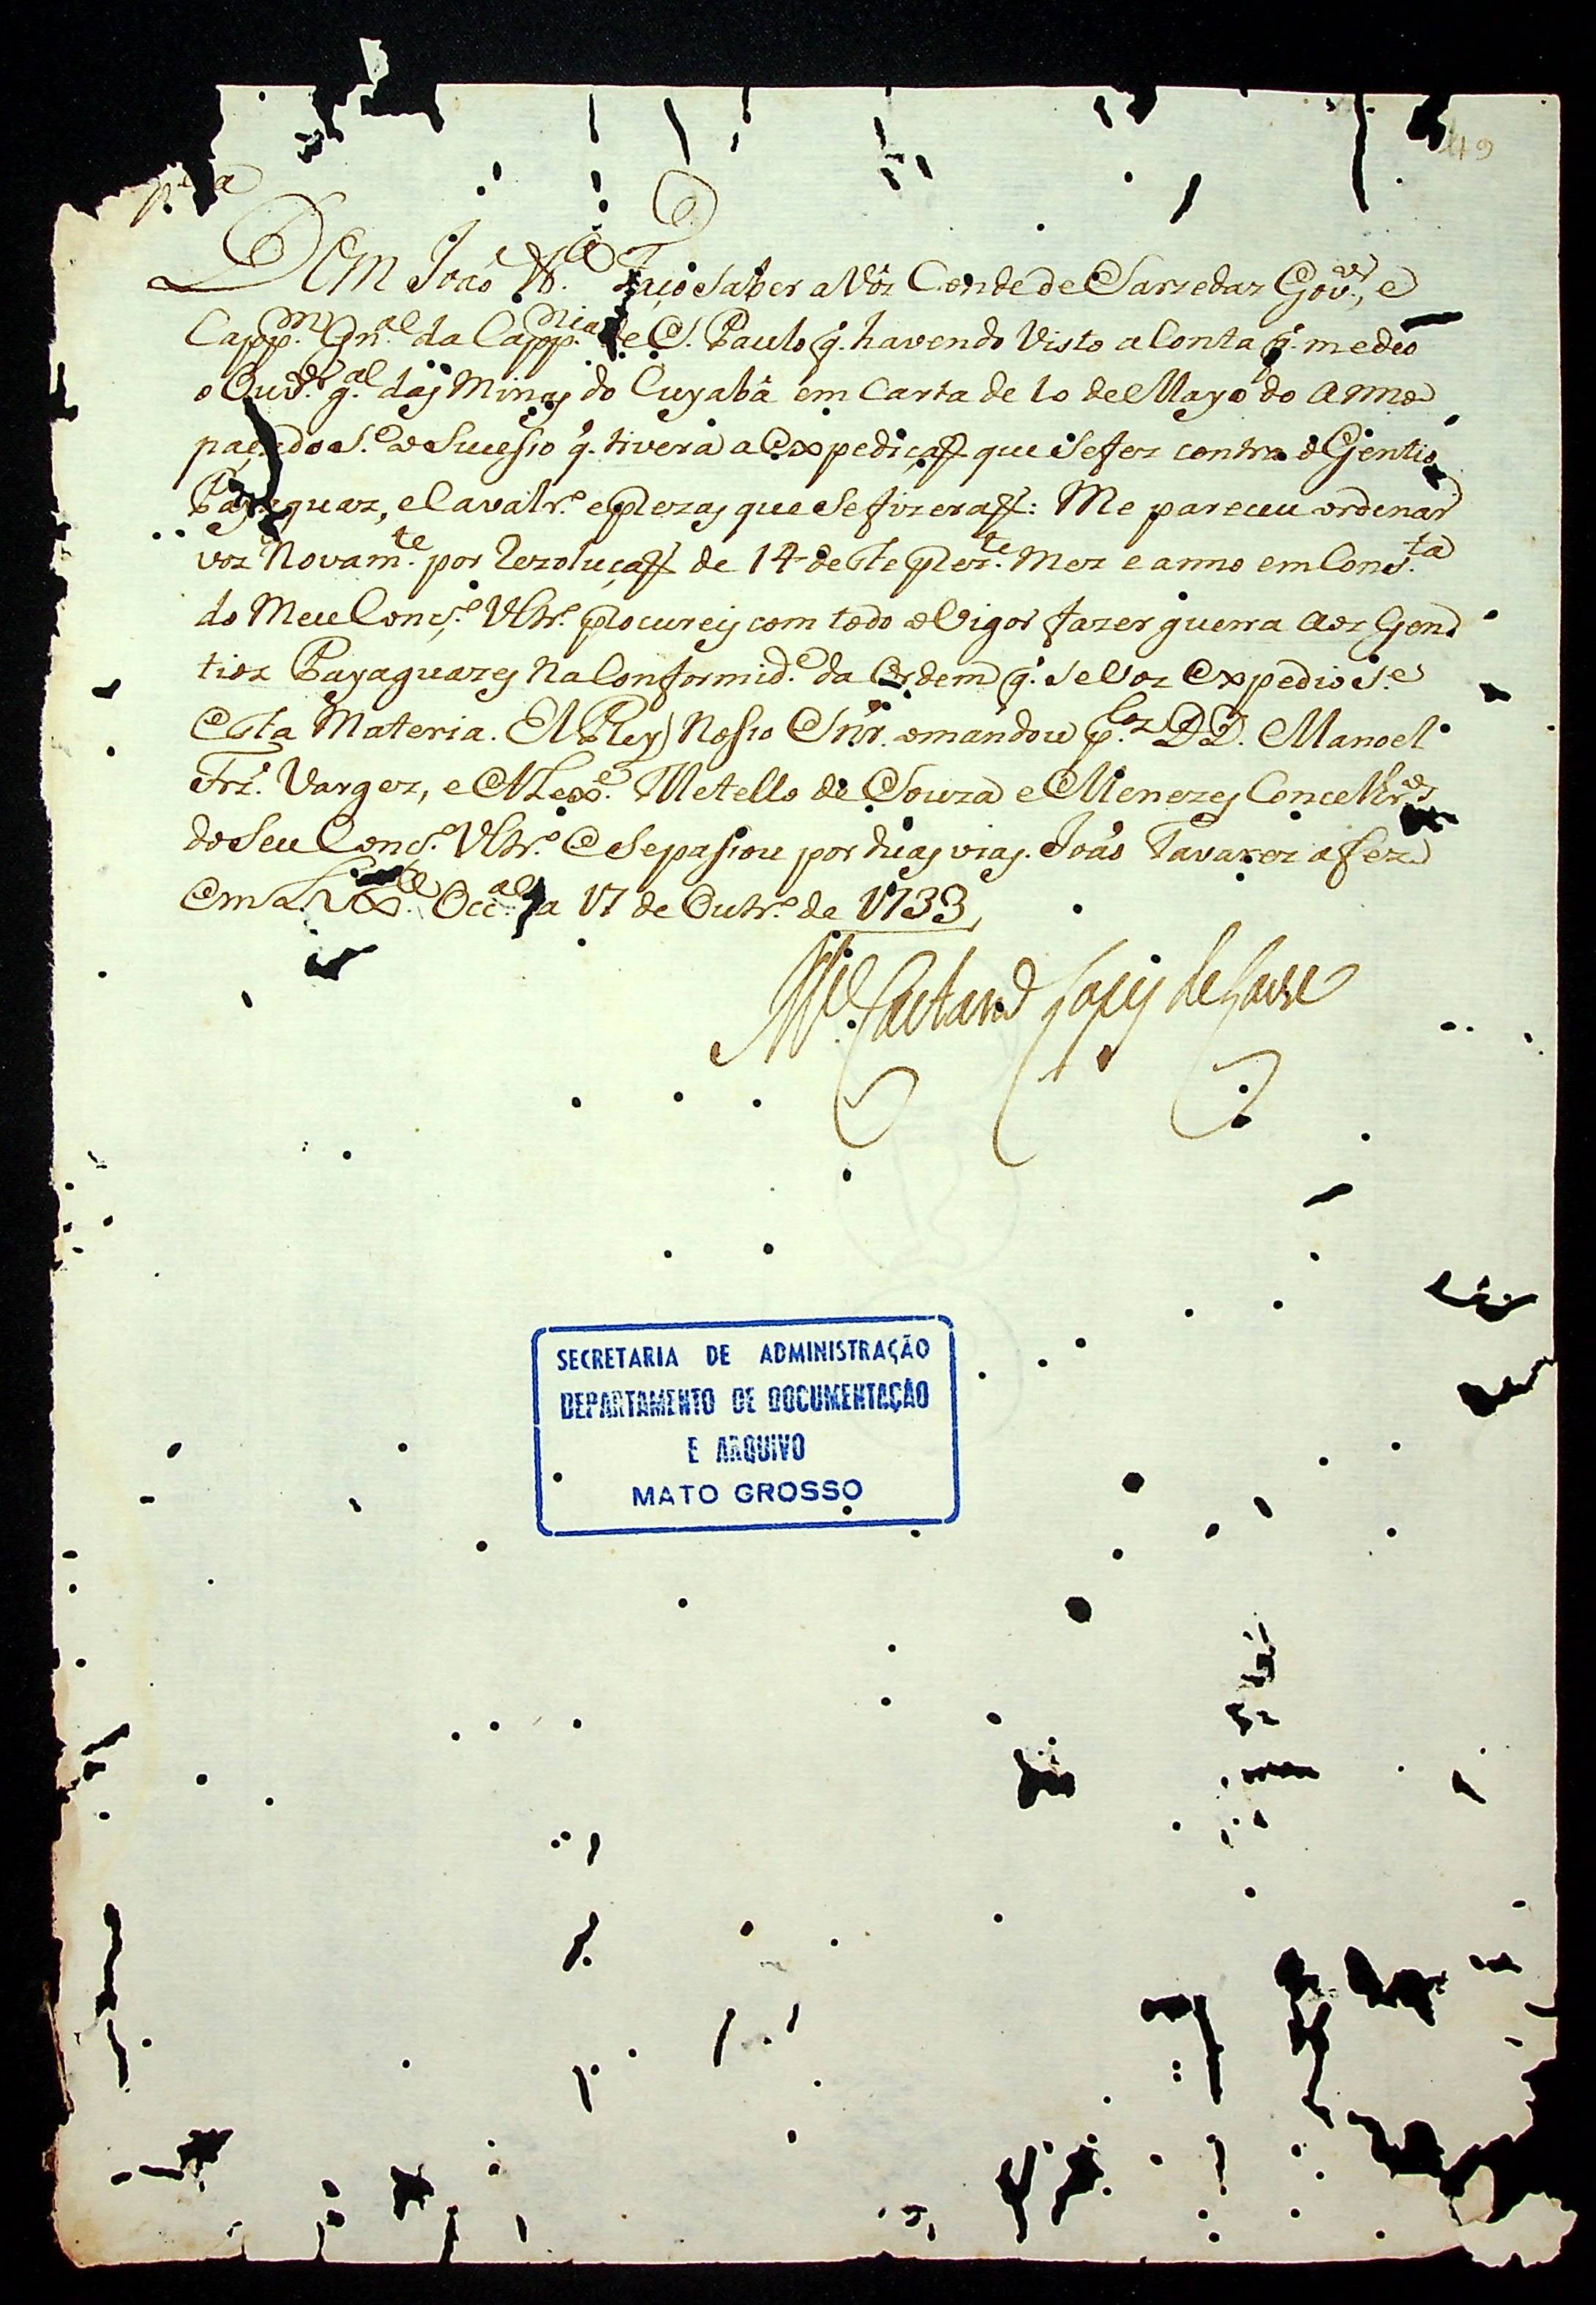 49
Dom João Vª Faço Saber a Vòs Conde de Sarzedas Gov.ᵒʳ, e
Capp.ᵐ Gn.ᵃˡ da Capp.ⁿⁱᵃ de S. Paulo q̃. havendo Visto a Conta q̃. me deo
o Ouv.ᵒʳ g.ᵃˡ das Minas do Cuyabâ em Carta de 10 de Mayo do Anno
paçado S.ᵉ o Sucesso q̃. tivera a Expediçaõ que se fez contra o Gentio
Payaguaz, e Cavalr.º e prezas que se fizeraõ: Me pareceu ordenar
voz Novam.ᵗᵉ por Rezoluçaõ de 14 deste prez.ᵗᵉ Mez e anno em Cons.ᵗᵃ
do Meu Conc.º Vltr.º procureis com todo o Vigor fazer guerra aos Gen
tios Payaguazes Na Conformid.ᵉ da Ordem q̃. se Voz Expedio S.ᵉ
Esta Materia. El Rey Nosso Snr̃. o mandou p.ˡᵒˢ DD. Manoel
Frz̃. Vargez, e Alexᵉ. Metello de Souza e Menezes Concelhr.ᵒˢ
do Seu Conc.º Vltr.º E se passou por duas vias. João Tavarez a fez
em Lix.ᵃ Occ.ᵃˡ a 17 de Outr.º de 1733,
M.ᵉˡ Caetano Lopes de Lavre
SECRETARIA DE ADMINISTRAÇÃO
DEPARTAMENTO DE DOCUMENTAÇÃO
E ARQUIVO
MATO GROSSO